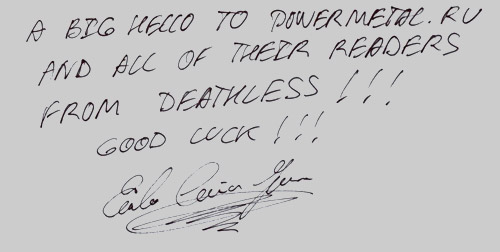 A BIG HELLO TO POWERMETAL.RU
AND ALL OF THEIR READERS
FROM DEATHLESS!!!
GOOD LUCK!!!